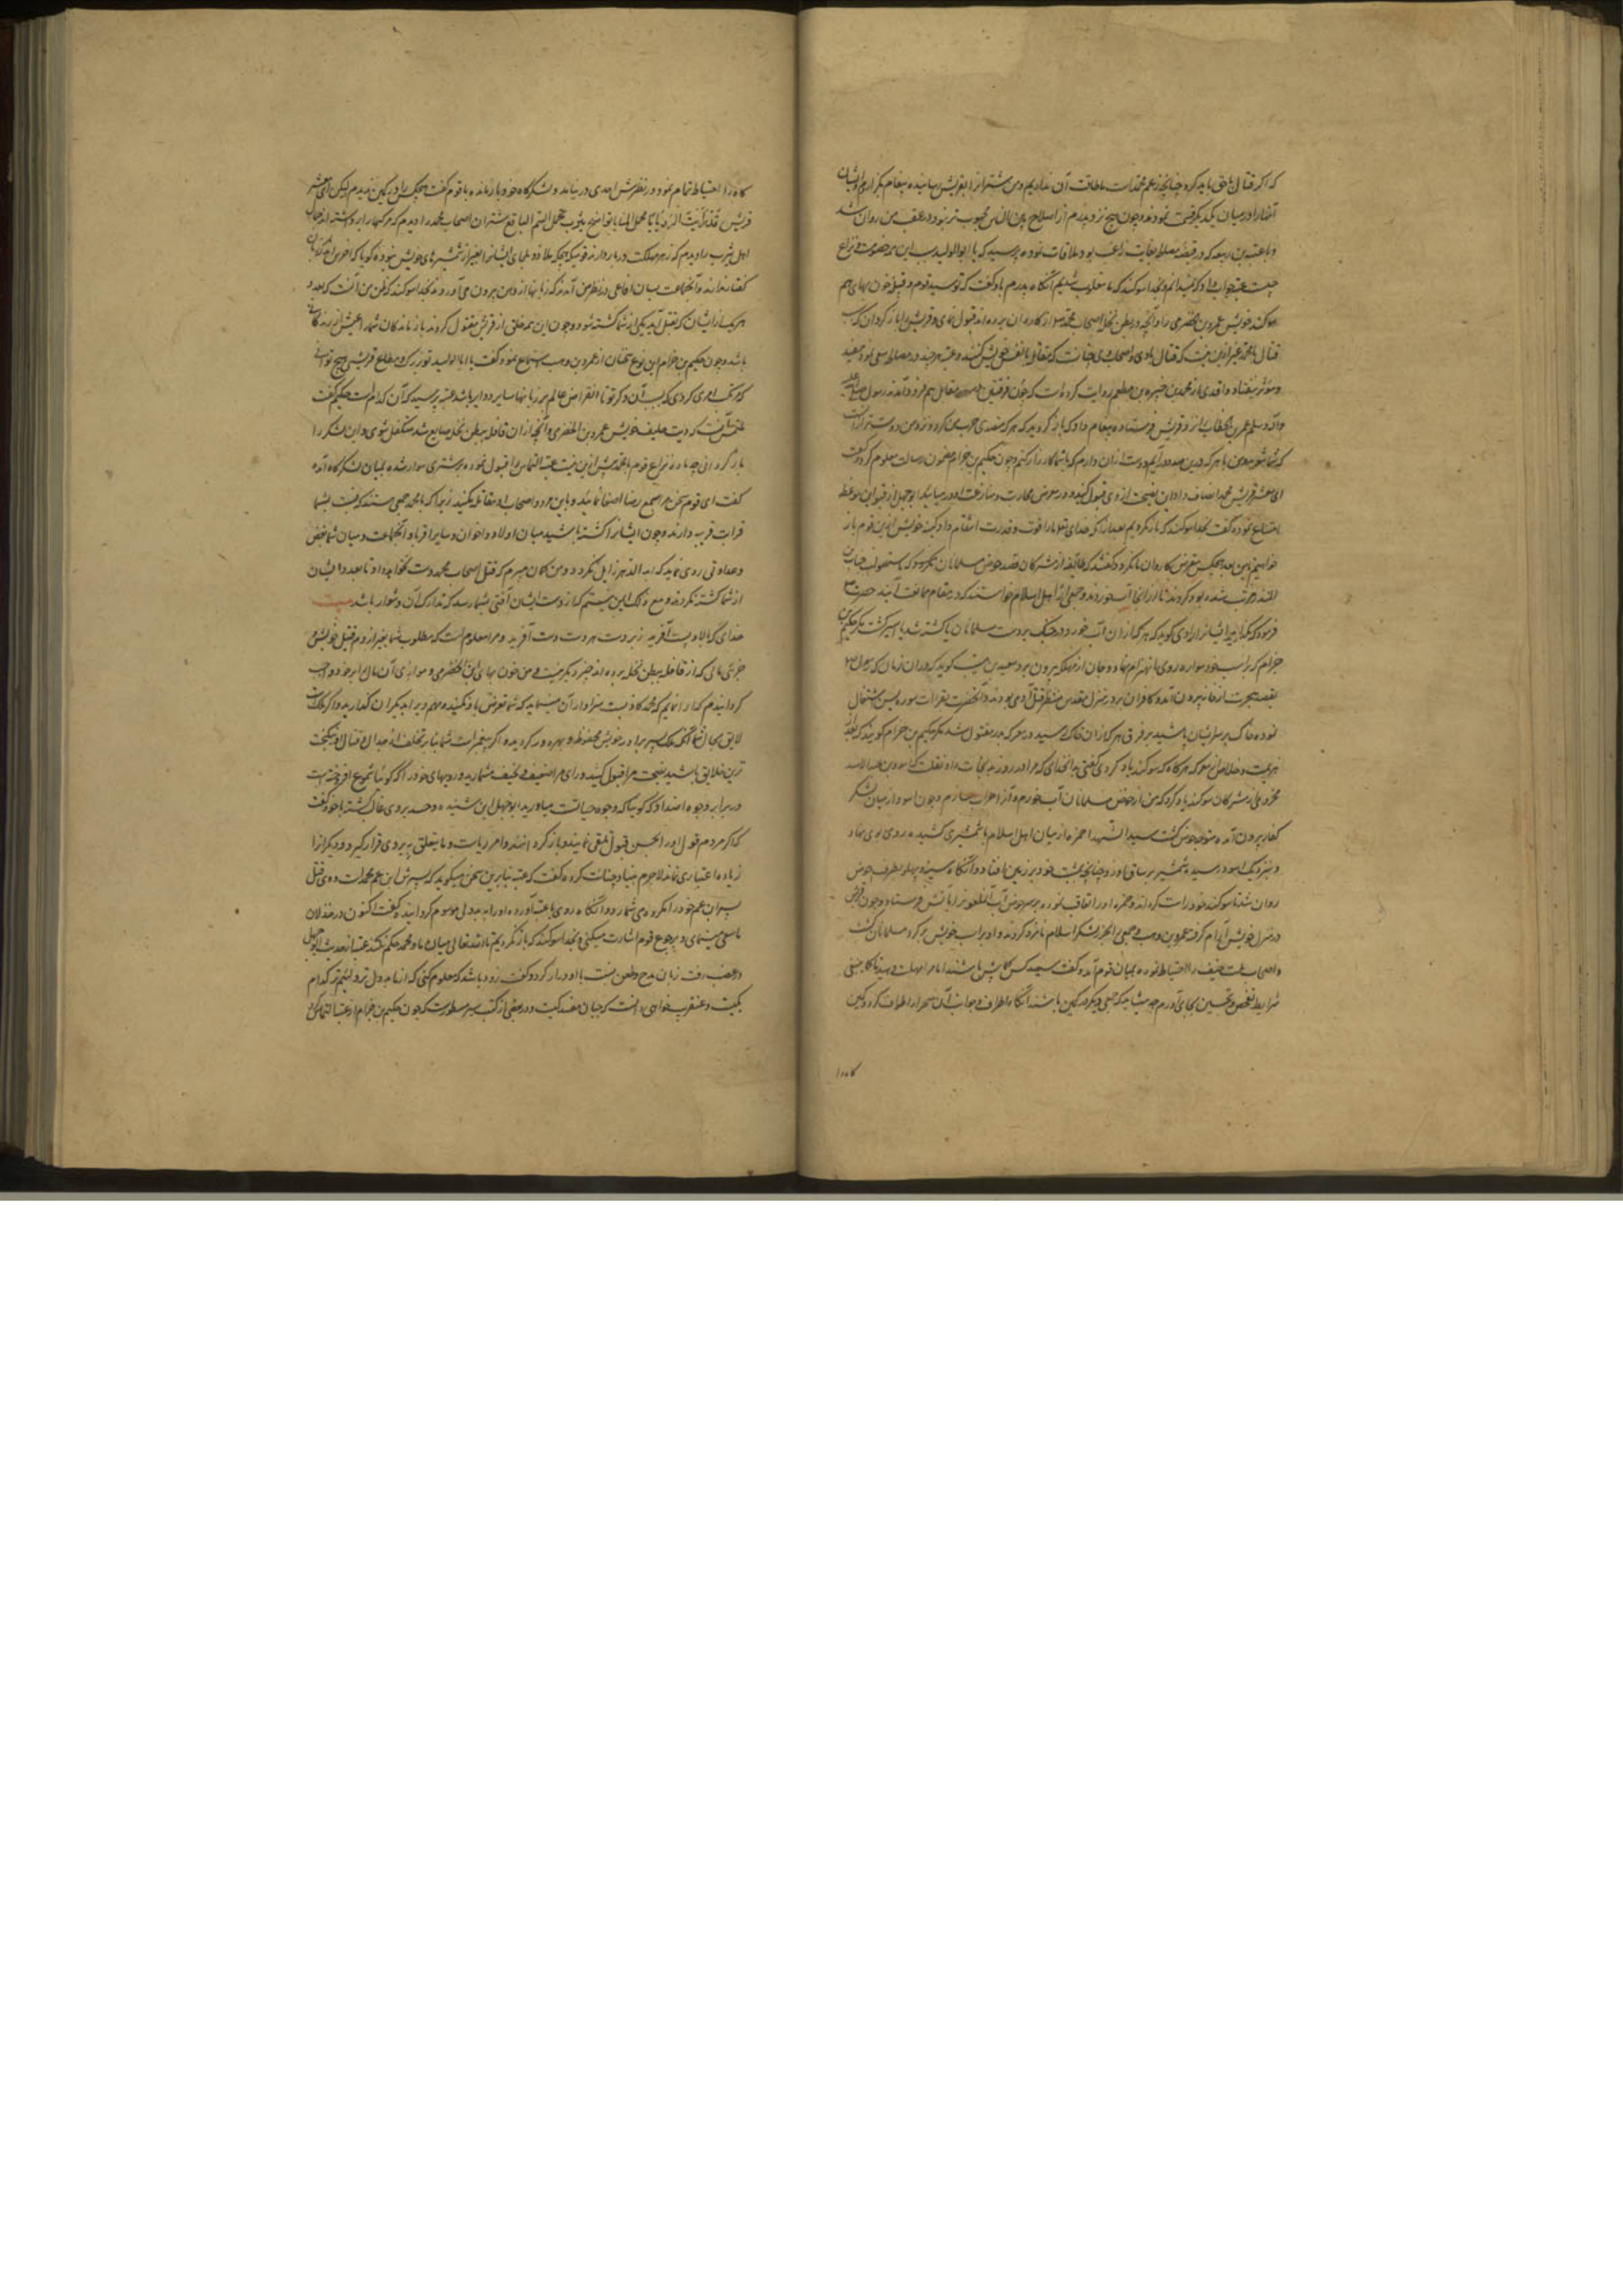 که اگر قتال با حق باید کرد چنانچه زعم محمد است ما طاقت آن نداریم و من شتران را بقریش رسانیده پیغام بگزاردم و ایشان
آنها را در میان یکدیگر قسمت نمودند و چون هیچ نزد پدرم از اصلاح بین الناس محبوب تر نبود در عقب من روان شد
و با عتبه بن ربیعه که در قبضه مصلح بغایت راغب بود ملاقات نموده پرسید که یا ابوالولید سبب این همه خصومت و نزاع
چیست عتبه جواب داد که نمیدانم و بخدا سوگند که ما مغلوب شدیم آنگاه پدرم باو گفت که تو سید قوم و قبیله خون بهای هم
سوگند خویش عمرو بن حضرمی را و آنچه در بطن نخله اصحاب محمد از کاروان برده اند قبول نمای و قریش را باز گردان که سبب
قتال با محمد غیر ازین نیست که قتال با وی و اصحاب وی چنانست که مقاتله با نفس خویش کنند و عتبه هرچند در مصالحه سعی نمود مفید
و مؤثر نیفتاد و واقدی از محمد بن جبیر بن مطعم روایت کرده است که چون فریقین مقابل هم فرود آمدند رسول صلی الله علیه
وآله وسلم عمر بن الخطاب را نزد قریش فرستاده پیغام داد که باز گردید که هر که متصدی حرب من گردد نزد من دوست تر از آنست
که شما شوید من با هر که درین صدد در آیم دوست تر از آن دارم که با شما کارزار کنم و چون حکیم بن حزام مضمون رسالت معلوم کرد گفت
ای معشر قریش محمد انصاف داد این نصیحت از وی قبول کنید و در معرض محاربت و منازعت او در میایید ابوجهل از قبول این موعظه
امتناع نموده گفت بخدا سوگند که باز نگردیم بعد از آنکه خدای تعالی ما را قوت و قدرت انتقام داد و کینه خویش ازین قوم باز
خواهیم تا من بعد هیچکس متعرض کاروان ما نگردد گفتند که طایفه از مشرکان قصد حوض مسلمانان کردند که بتصویب جناب
مرتب شده بود کردند تا از آنجا آب خورند و جمعی از اهل اسلام خواستند که در مقام ممانعت آیند حضرت
فرمود که بگذارید ایشان را راوی گوید که هر که از آن آب خورد در جنگ بر دست مسلمانان یا کشته شد یا اسیر گشت مگر حکیم بن
حزام که بر اسب خود سوار روی بانهزام نهاد و جان از مهلکه بیرون برد و سعید بن مسیب گوید که در آن زمان که رسول
بقصد هجرت از خانه بیرون آمد و کافران بر در منزل مقدس منتظر قتل آدمی بودند و آنحضرت بقراءت سوره یس اشتغال
نموده خاک بر سر ایشان پاشید بر فرق هر که از آن خاک رسید در معرکه بدر مقتول شد مگر حکیم بن حزام گویند که بعد از
هزیمت و خلاص از معرکه هرگاه که سوگند یاد کردی گفتی بدان خدای که مرا در روز بدر نجات داد نقلست که اسود بن عبدالاسد
مخزومی از مشرکان سوگند یاد کرد که من از حوض مسلمانان آب خورم و آنرا خراب سازم و چون اسود از میان لشکر
کفار بیرون آمد و متوجه حوض گشت سید الشهدا حمزه از میان اهل اسلام با شمشیری کشیده روی بوی نهاد
و نزدیک اسود رسیده شمشیر بر ساق او زد چنانچه پشت خود بر زمین افتاد و آنگاه سینه و پهلو بطرف حوض
روان شد تا سوگند خود راست کرده اند و حمزه او را تعاقب نموده بر سر حوض آب آن ملعون را بآتش فرستاد و چون قریش
در منزل خویش آرام گرفتند عمیر بن وهب جمحی را بحزر لشکر اسلام نامزد کردند و او بر اسب خویش بر گرد مسلمانان گشت
و اصحاب ملت حنیف را احتیاط نموده بمیان قوم آمد و گفت سیصد کس کما بیش باشند اما مرا مهلت دهید تا کما ینبغی
شرایط تفحص و تجسس بجای آورم چه شاید که جمعی دیگر در کمین باشند آنگاه اطراف و جوانب آن صحرا را طواف کرد و کمین
کاه را
کاه را احتیاط تمام نمود و در نظرش احدی در نیامد و بلشکرگاه خود باز آمده با قوم گفت هیچکس را در کمین ندیدم لیکن ای معشر
قریش قد رأیت البلایا تحمل المنایا نواضح یثرب تحمل السم الناقع شتران اصحاب محمد را دیدم که مرگها را برداشته اند
اهل یثرب را دیدم که زهر مهلک در بار دارند قومی که هیچ ملاذ و ملجای ایشان را بغیر از شمشیرهای خویش نبوده گویا که اخرس اند که زبان
گفتار ندارند و آنجماعت بسان افاعی در نظر من آمدند که زبانها از دهن بیرون می آوردند بخدا سوگند که ظن من آنست که بعدد
هر یک از ایشان که بقتل آید یکی از شما کشته شود و چون این همه خلق از قریش مقتول گردند بازماندگان شما را عیش از زندگانی
باشد و چون حکیم بن حزام این نوع سخنان از عمیر بن وهب استماع نمود گفت یا ابا الولید تو بزرگ و مطاع قریشی هیچ توانی
که مرتکب امری گردی که بسبب آن ذکر تو تا انقراض عالم بر زبانها سایر و دایر باشد عتبه پرسید که آن کدام است حکیم گفت
ملتمس آنست که دیت حلیف خویش عمرو بن الحضرمی و آنچه از آن قافله ببطن نخله ضایع شد متکفل شوی و این لشکر را
باز گردانی چه ماده نزاع قوم با محمد بیش ازین نیست عتبه التماس را قبول نموده بر شتری سوار شده بمیان لشکرگاه آمد
گفت ای قوم سخن مرا بسمع رضا اصغا نمائید و با این مرد و اصحاب او مقاتله مکنید زیرا که با محمد جمعی هستند که نسبت بشما
قرابت قریبه دارند و چون ایشان را کشته باشید میان اولاد و اخوان و سایر اقربا و آنجماعت و میان شما بغض
و عداوتی روی نماید که ابد الدهر زایل نگردد و من گمان میبرم که قتل اصحاب محمد دست نخواهد داد تا بعدد ایشان
از شما کشته نگردند و مع ذلک ایمن نیستم که از دست ایشان آفتی بشما رسد که تدارک آن دشوار باشد بیت
خدای که بالا و پست آفرید زبر دست هر دست دست آفرید و مرا معلوم است که مطلوب شما بغیر از دم قتیل خویش و
جزئی مالی که از قافله ببطن نخله برده اند چیز دیگر نیست و من خون بهای ابن الحضرمی و موازی آن مال را بر خود واجب
گردانیدم که ادا نمایم که محمد کاذبست سزاوار آن مینماید که شما تعرض باو نکنید و مهم ویرا بدیگران گذارید و اگر ملکست
لایق بحال شما آنکه ملک پسر برادر خویش محفوظ و بهره ور گردید و اگر پیغمبرست شما بنابر تخلف از جدال و قتال او نیکبخت
ترین خلایق باشید نصیحت مرا قبول کنید و رای مرا ضعیف و نحیف مشمارید و رویهای خود را که گوئیا شموع افروخته است
در برابر وجوه اضداد که گوئیا که وجوه حیاتست میاورید ابوجهل این شنیده و حسد بر وی غالب گشته با خود گفت
که اگر مردم قول او را بحسن قبول تلقی نمایند و باز گردند امر ریاست و ما یتعلق به بر وی قرار گیرد و دیگر او را
زیاده اعتباری نماند لاجرم بنیاد خباثت کرده گفت که عتبه بنابرین سخن میگوید که پسرش ابن عم محمد است و وی قتل
پسران عم خود را مکروه می شمارد و آنگاه روی با عتبه آورده او را ببد دلی موسوم گردانیده گفت اکنون در خذلان
ما سعی مینمائی و برجوع قوم اشارت میکنی و بخدا سوگند که باز نگردیم تا الله تعالی میان ما و محمد حکم نکند عتبه از حدیث ابوجهل
در غضب رفت زبان بقدح و طعن بنسبت باو دراز کرد و گفت زود باشد که معلوم کنی که از ما بد دل تر و لئیم تر کدام
یکیست و عنقریب خواهی دانست که جبان مفسد کیست و در بعضی از کتب سیر مسطورست که چون حکیم بن حزام از عتبه التماس کرد